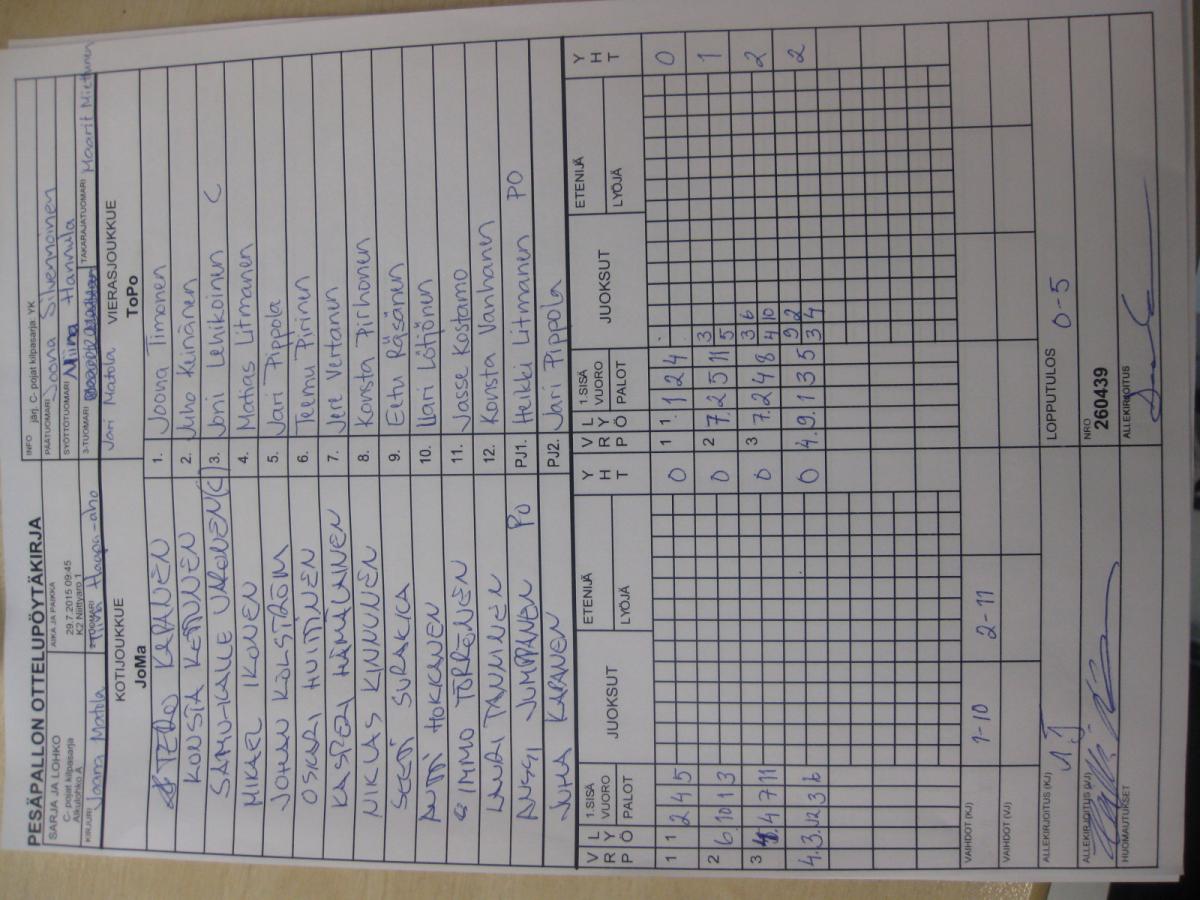 PESÄPALLON OTTELUPÖYTÄKIRJA
SARJA JA LOHKO
C- pojat kilpasarja
Alkulohko A
AIKA JA PAIKKA
29.7.2015 09:45
K2 Niittyaro 1
INFO järj. C- pojat kilpasarja: YK
PÄÄTUOMARI Joona Silvennoinen
SYÖTTÖTUOMARI Miina Hannula
KIRJURI Joana Matola
2-TUOMARI Tiina Haapa-aho
3-TUOMARI Jari Matola
TAKARAJATUOMARI Maarit Miettunen
KOTIJOUKKUE VIERASJOUKKUE
JoMa ToPo
EERO KAPANEN 1. Joona Timonen
KONSTA KEMUNEN 2. Juho Keinänen
SAMU-KALLE VARONEN (C) 3. Joni Lehikoinen C
MIKAEL IKONEN 4. Matias Litmanen
JOHAN KOLSTRÖM 5. Jari Pippola
OSKARI HUITINEN 6. Teemu Pirinen
KASPERI HÄMÄLÄINEN 7. Jere Vertanen
NIKLAS KINNUNEN 8. Konsta Pirhonen
SEETI SURAKKA 9. Eetu Räsänen
ANTTI HOKKANEN 10. Ilari Lötjönen
SIMMO TORRÖNEN 11. Jasse Kostamo
LAURI TANNINEN 12. Konsta Vanhanen
ANSSI JUMPPANEN PO PJ1. Heikki Litmanen PO
JUHA KAPANEN PJ2. Jari Pippola
V R P L Y Ö 1.SISÄ VUORO PALOT JUOKSUT ETENIJÄ LYÖJÄ Y H T V R P L Y Ö 1.SISÄ VUORO PALOT JUOKSUT ETENIJÄ LYÖJÄ Y H T
1 1 2 4 5 0 1 1 1 2 4 0
2 6 10 1 3 0 2 7 2 5 11 3 5 1
3 4 7 11 0 3 7 2 4 8 3 6 4 10 2
4 3 12 3 6 0 4 9 1 3 5 9 2 3 4 2
VAIHDOT (KJ) 1-10 2-11
VAIHDOT (VJ)
ALLEKIRJOITUS (KJ)
LOPPUTULOS 0-5
ALLEKIRJOITUS (VJ)
NRO
260439
HUOMAUTUKSET
ALLEKIRJOITUS